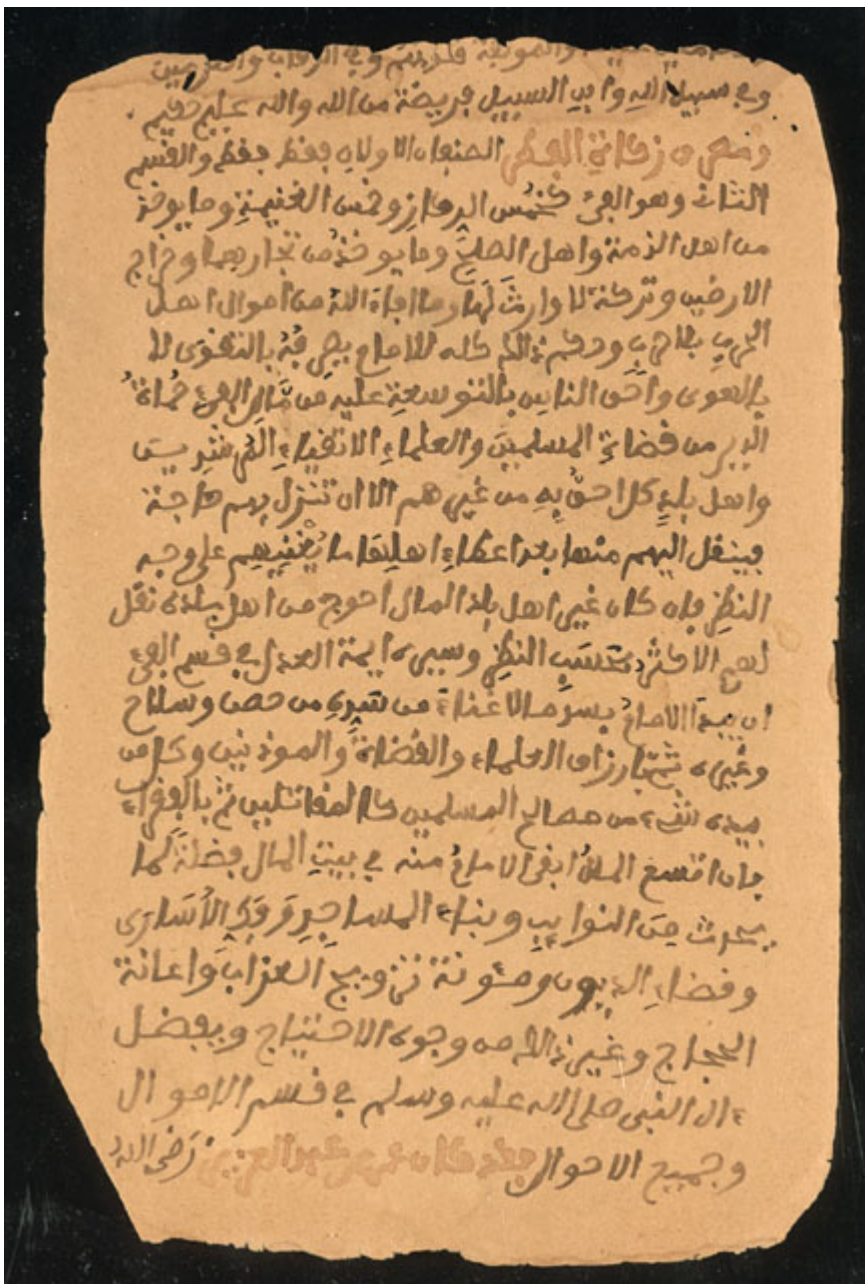 والمولفة قلوبهم وفي الرقاب والغرمين
وفي سبيل الله وابن السبيل فريضة من الله والله عليم حكيم
ومصرف زكاة الفطر الصنفان الاولان فقط فقط والقسم
الثاني وهو الفيء كخمس الركاز وخمس الغنيمة وما يوخذ
من اهل الذمة واهل الصلح وما يوخذ من تجارهما وخراج
الارضين وتركة لا وارث لها وما افاء الله من اموال اهل
الحرب بلا حرب وحكم ذالك كله للامام يصرفه بالتقوى لا
بالهوى واحق الناس بالتوسعة عليه من مال الفيء حماة
الدين من قضاة المسلمين والعلماء الاتقياء المدرسين
واهل بلد كل احق به من غيرهم الا ان تنزل بهم حاجة
فينقل اليهم منها بعد اعطاء اهلها ما يغنيهم على وجه
النظر فان كان غير اهل بلد المال احوج من اهل بلده نقل
لهم الاكثر بحسب النظر وسيرة ايمة العدل في قسم الفيء
ان يبدا الامام بسد ما لا غناء من سده من حصن وسلاح
وغيره ثم بارزاق العلماء والقضاة والموذنين وكل من
بيده شيء من مصالح المسلمين كالمقاتلين ثم بالفقراء
فان اتسع المال ابقى الامام منه في بيت المال فضلة لما
يحدث من النوايب وبناء المساجد وفك الأسارى
وقضاء الديون ومئونة تزويج العزاب واعانة
الحجاج وغير ذالك من وجوه الاحتياج وبفضل
ءال النبي صلى الله عليه وسلم في قسم الاموال
وجميع الاحوال فقد كان عمر بن عبد العزيز رضي الله